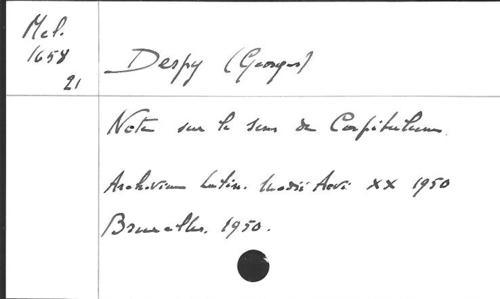 Mel.
1658
21
Despy (Georges)
Note sur le sens de Capitulum.
Archivum Latin. Medii Aevi XX 1950
Bruxelles. 1950.